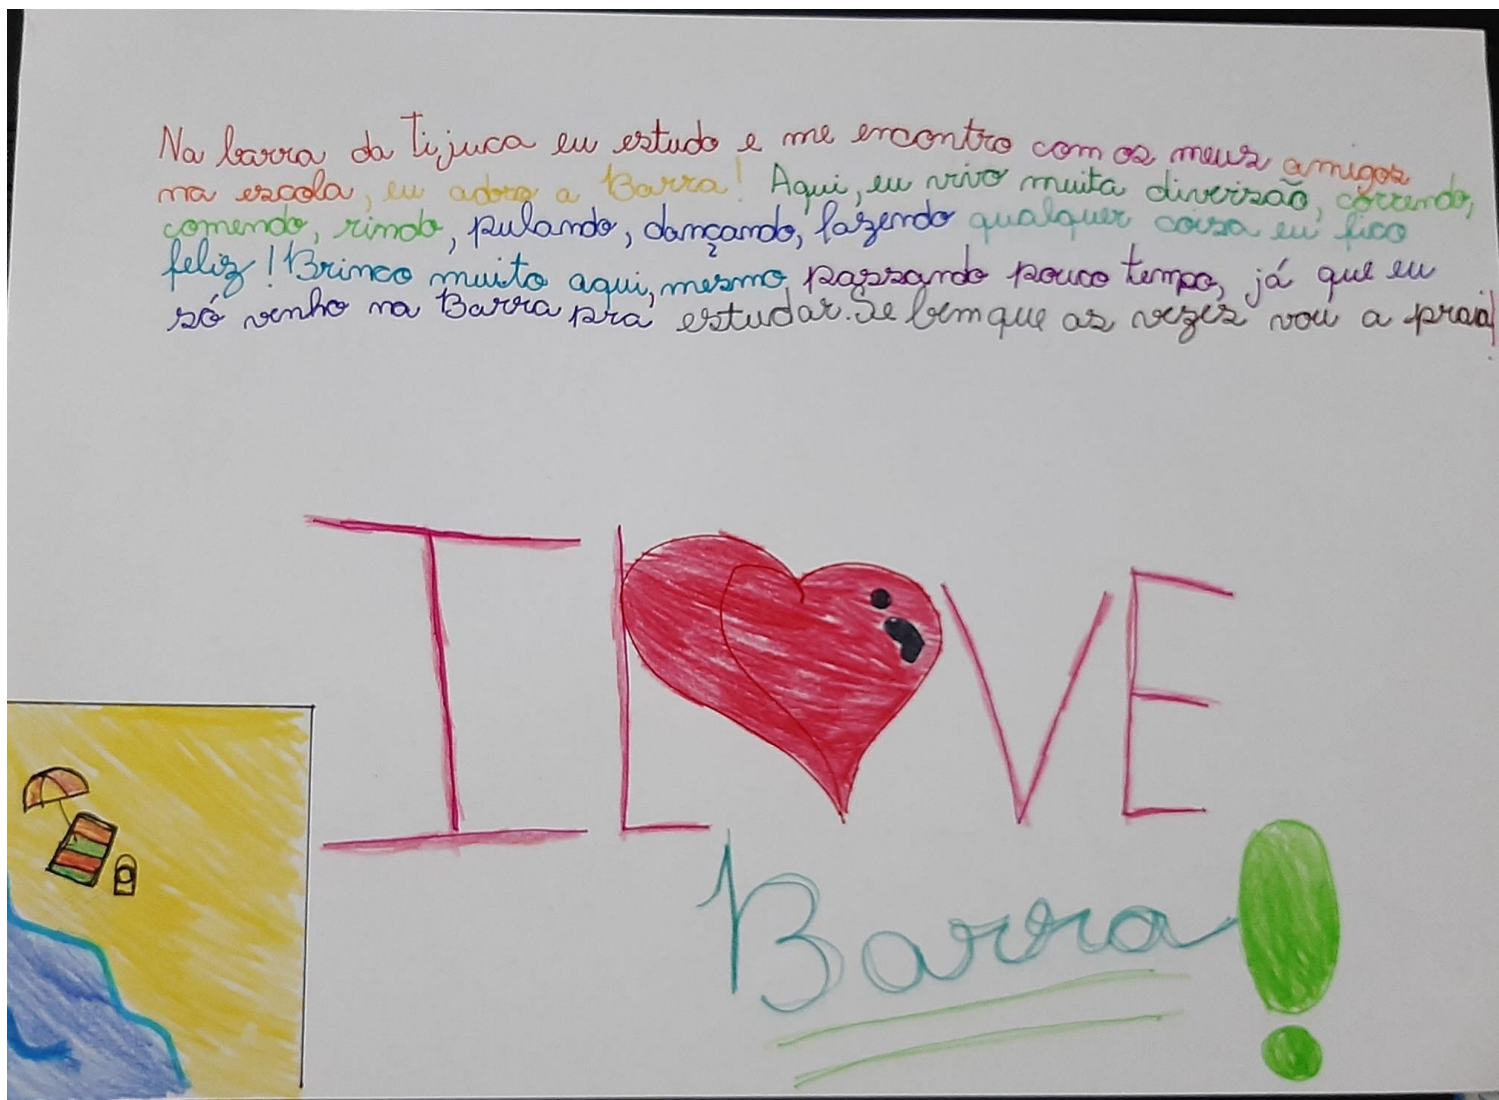 Na barra da Tijuca eu estudo e me encontro com os meus amigos
na escola, eu adoro a Barra! Aqui, eu vivo muita diversão, correndo,
comendo, rindo, pulando, dançando, fazendo qualquer coisa eu fico
feliz! Brinco muito aqui, mesmo passando pouco tempo, já que eu
só venho na Barra pra estudar. Se bem que as vezes vou a praia!
I LOVE
Barra!